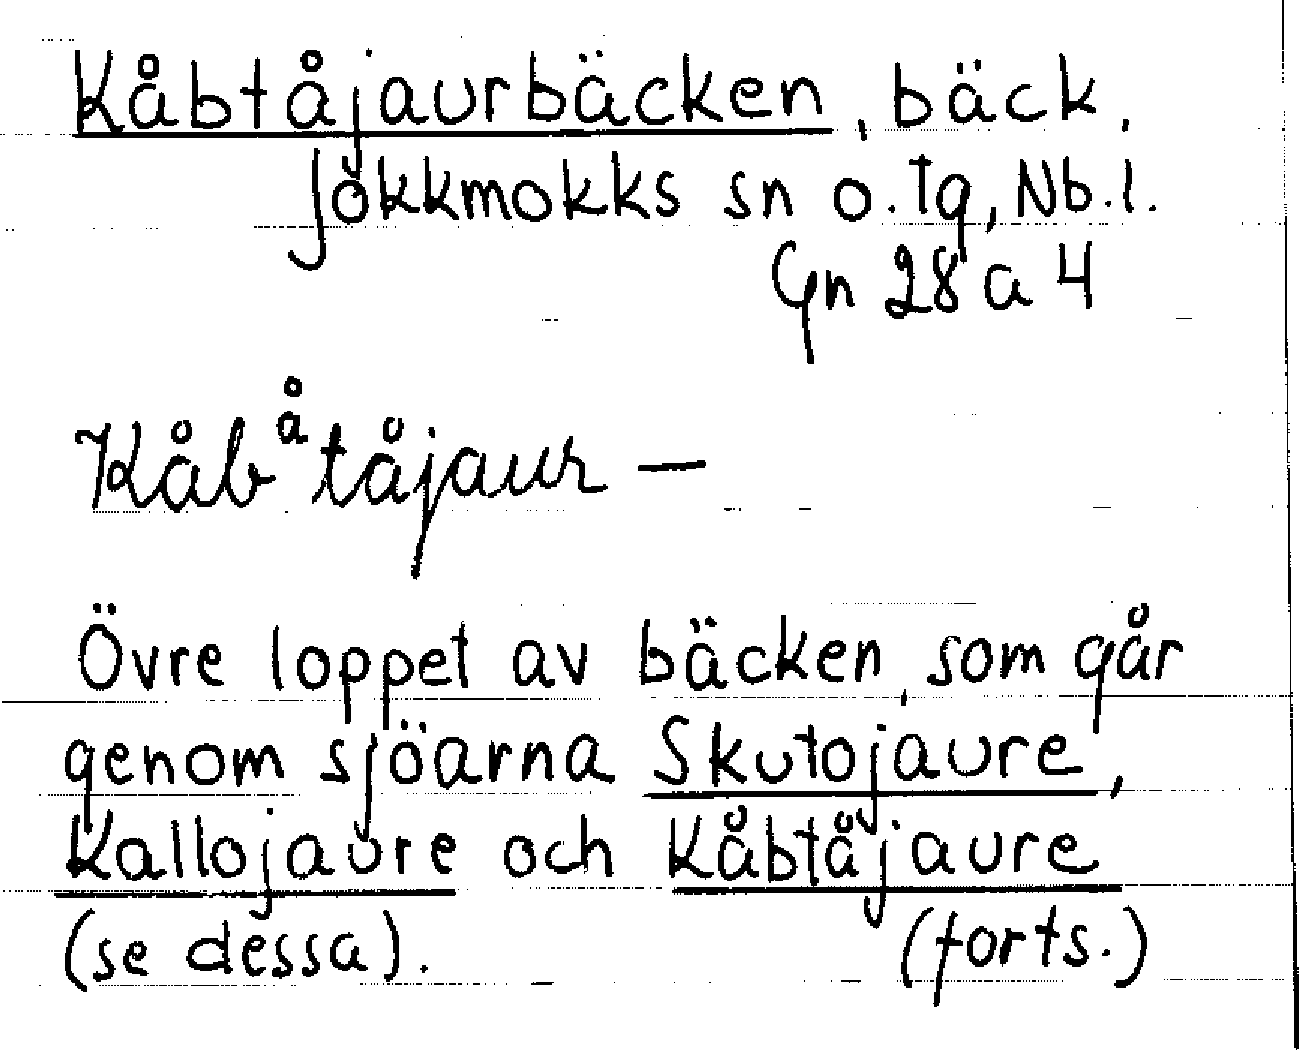 Kåbtåjaurbäcken, bäck,
Jokkmokks sn o. tg, Nb. l.
Gn 28 a 4
Kåbåtåjaur —
Övre loppet av bäcken, som går
genom sjöarna Skutojaure,
Kallojaure och Kåbtåjaure
(se dessa). (forts.)